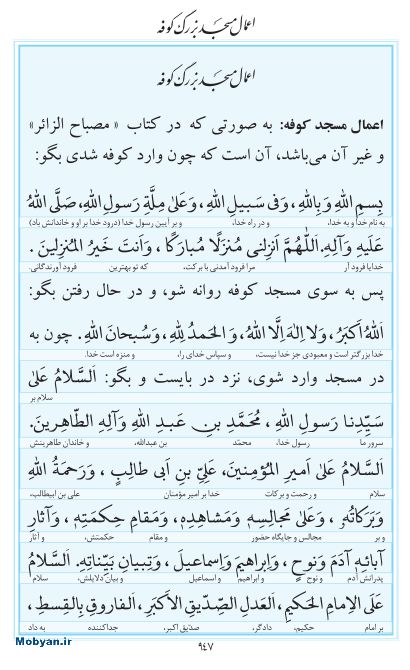 اعمال مسجد بزرگ کوفه
اعمال مسجد بزرگ کوفه
اعمال مسجد کوفه: به صورتی که در کتاب «مصباح الزائر»
و غیر آن می‌باشد، آن است که چون وارد کوفه شدی بگو:
بِسمِ اللهِ وَبِاللهِ، وَفی سَبیلِ اللهِ، وَعَلیٰ مِلَّةِ رَسولِ اللهِ، صَلَّی اللهُ
به نام خدا و به خدا، و در راه خدا، و بر آیین رسول خدا (درود خدا بر او و خاندانش باد)
عَلَیهِ وَآلِهِ. اَللّٰهُمَّ اَنزِلنی مُنزَلًا مُبارَکًا، وَاَنتَ خَیرُ المُنزِلینَ.
خدایا فرود آر مرا فرود آمدنی با برکت، که تو بهترین فرود آورندگانی.
پس به سوی مسجد کوفه روانه شو، و در حال رفتن بگو:
اَللهُ اَکبَرُ، وَلا اِلٰهَ اِلَّا اللهُ، وَ الحَمدُ لِلّٰهِ، وَسُبحانَ اللهِ. چون به
خدا بزرگتر است و معبودی جز خدا نیست، و سپاس خدای را، و منزه است خدا.
در مسجد وارد شوی، نزد در بایست و بگو: اَلسَّلامُ عَلیٰ
سلام بر
سَیِّدِنا رَسولِ اللهِ، مُحَمَّدِ بنِ عَبدِ اللهِ وَآلِهِ الطّاهِرینَ.
سرور ما رسول خدا، محمّد بن عبدالله، و خاندان طاهرینش
اَلسَّلامُ عَلیٰ اَمیرِ المُؤمِنینَ، عَلِیِّ بنِ اَبی طالِبٍ، وَرَحمَةُ اللهِ
سلام خدا بر امیر مؤمنان علی بن ابیطالب، و رحمت و برکات
وَبَرَکاتُهُ، وَعَلیٰ مَجالِسِهِ وَمَشاهِدِهِ، وَمَقامِ حِکمَتِهِ، وَآثارِ
و بر مجالس و جایگاه حضور و مقام حکمتش، و آثار
آبائِهِ آدَمَ وَنوحٍ، وَاِبراهیمَ وَاِسماعیلَ، وَتِبیانِ بَیِّناتِهِ. اَلسَّلامُ
پدرانش آدم و نوح و ابراهیم و اسماعیل و بیان دلایلش، سلام
عَلَی الاِمامِ الحَکیمِ، العَدلِ الصِّدّیقِ الاَکبَرِ، الفاروقِ بِالقِسطِ،
بر امام حکیم، دادگر، صدّیق اکبر، جداکننده به داد
۹۴۷
Mobyan.ir